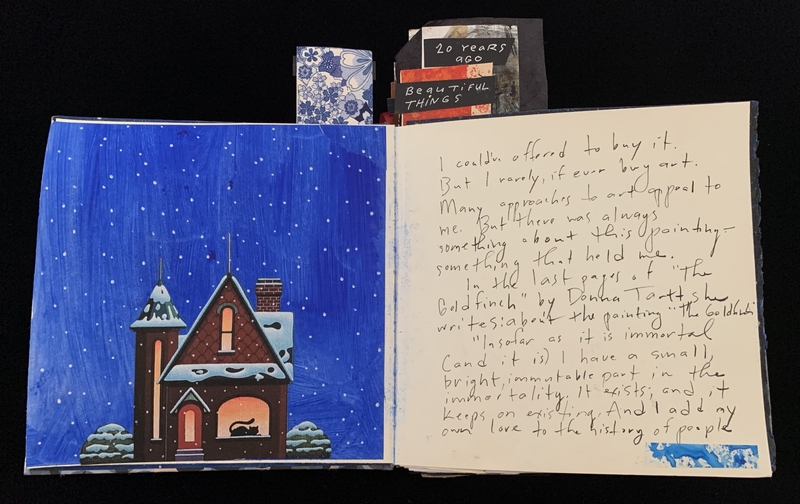 20 YEARS
AGO
BEAUTIFUL
THINGS
I couldn offered to buy it.
But I rarely, if ever buy art.
Many approaches to art appeal to
me. But there was always
something about this painting—
something that held me.
In the last pages of "The
Goldfinch" by Donna Tartt, she
writes about the painting "The Goldfinch"
"Insofar as it is immortal
(and it is) I have a small,
bright, immutable part in the
immortality. It exists; and it
keeps on existing. And I add my
own love to the history of people